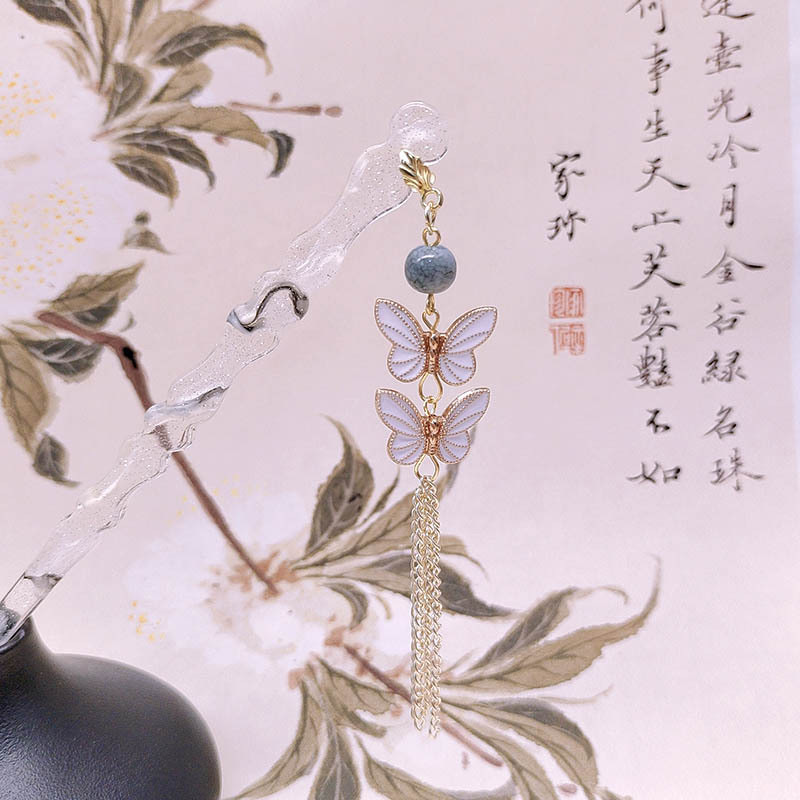 壺光冷月金谷綠名珠
何事生天上芙蓉豔不如
家珎